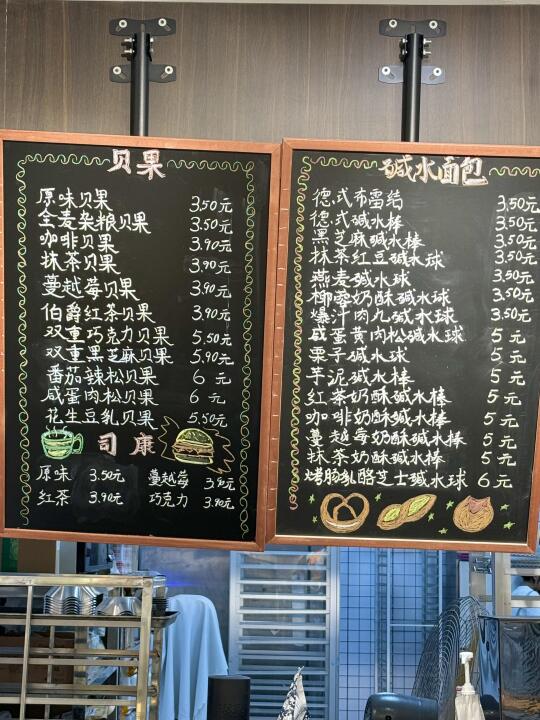 贝果
原味贝果 3.50元
全麦杂粮贝果 3.50元
咖啡贝果 3.90元
抹茶贝果 3.90元
蔓越莓贝果 3.90元
伯爵红茶贝果 3.90元
双重巧克力贝果 5.50元
双重黑芝麻贝果 5.90元
番茄辣松贝果 6元
咸蛋肉松贝果 6元
花生豆乳贝果 5.50元
司康
原味 3.50元 蔓越莓 3.90元
红茶 3.90元 巧克力 3.90元
碱水面包
德式布雷结 3.50元
德式碱水棒 3.50元
黑芝麻碱水棒 3.50元
抹茶红豆碱水球 3.50元
燕麦碱水球 3.50元
椰蓉奶酥碱水球 3.50元
爆汁肉丸碱水球 3.50元
咸蛋黄肉松碱水球 5元
栗子碱水球 5元
芋泥碱水棒 5元
红茶奶酥碱水棒 5元
咖啡奶酥碱水棒 5元
蔓越莓奶酥碱水棒 5元
抹茶奶酥碱水棒 5元
烤肠乳酪芝士碱水球 6元